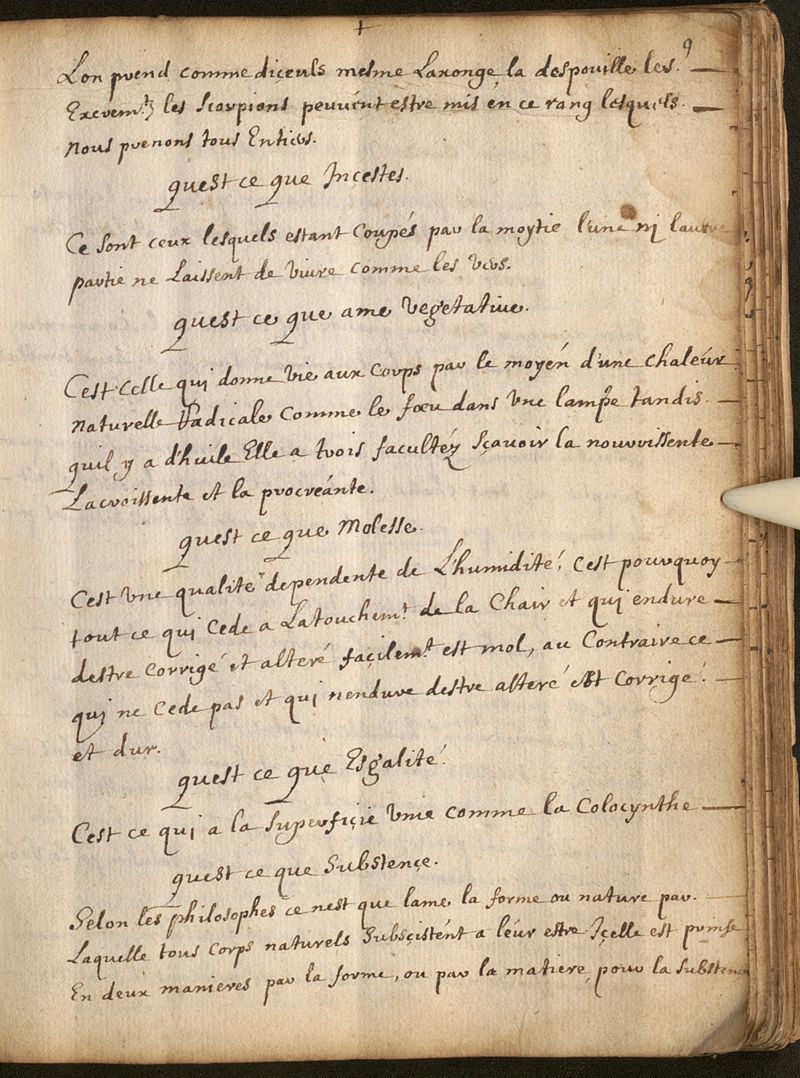 9
Lon prend comme diceuls mesme Laxonge la despouille les
Excremtz les Scorpions peuvent estre mis en ce rang lesquels
Nous prenons tous Entiers.
quest ce que Incestes.
Ce sont ceux lesquels estant Coupés par la moytie l'une ni lautre
partie ne Laissent de vivre comme les vers.
quest ce que ame vegetative.
Cest celle qui donne vie aux corps par le moyen d'une chaleur
naturelle Radicale comme le foeu dans vne lampe tandis
quil y a d'huile Elle a trois facultéz sçavoir la nourrissente
Lacroissente et la procreánte.
quest ce que Molesse.
Cest vne qualité dependente de L'humidité, Cest pourquoy
tout ce qui Cede a Latouchemt de la Chair et qui endure
destre corrigé et alteré façilemt est mol, au Contraire ce
qui ne Cede pas et qui n'endure destre alteré est Corrigé
et dur.
quest ce que Esgalité
Cest ce qui a la superfiçie vnie comme la Colocynthe
quest ce que Substençe.
Selon les philosophes ce nest que lame la forme ou nature par
Laquelle tous corps naturels Subsçistént a leur estre Içelle est prinse
En deux manieres par la forme, ou par la matiere, pour la Substence